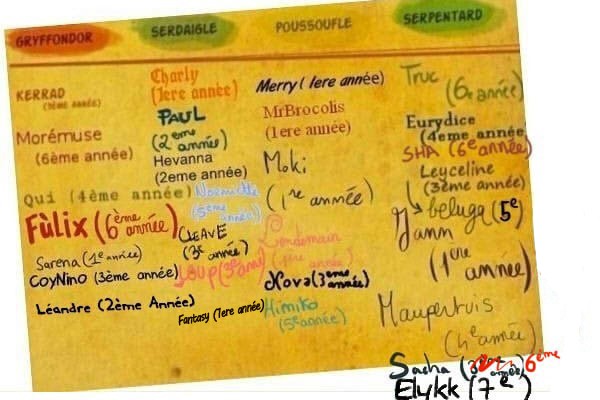 GRYFFONDOR
SERDAIGLE
POUSSOUFLE
SERPENTARD
KERRAD
(3ème année)
Morémuse
(6ème année)
Qui (4ème année)
Fùlix (6ème année)
Sarena (1e année)
CoyNino (3ème année)
Léandre (2ème Année)
Charly
(1ere année)
PAUL
(2eme
année)
Hevanna
(2eme année)
(5eme année)
CLEAVE
(3e année)
LOUP (3e
Fantasy (1ere année)
Merry (1ere année)
MrBrocolis
(1ere année)
Moki
(1re année)
Lendemain
(1ère année)
Nova (3eme année)
Himiko
(5e année)
Truc
(6e année)
Eurydice
(4eme année
SHA (6e année)
Leyceline
(3ème année)
beluga (5e
Yann
(1ere
année)
Maupertuis
(4e année)
Sacha
année) 6ème
Elykk (7e)